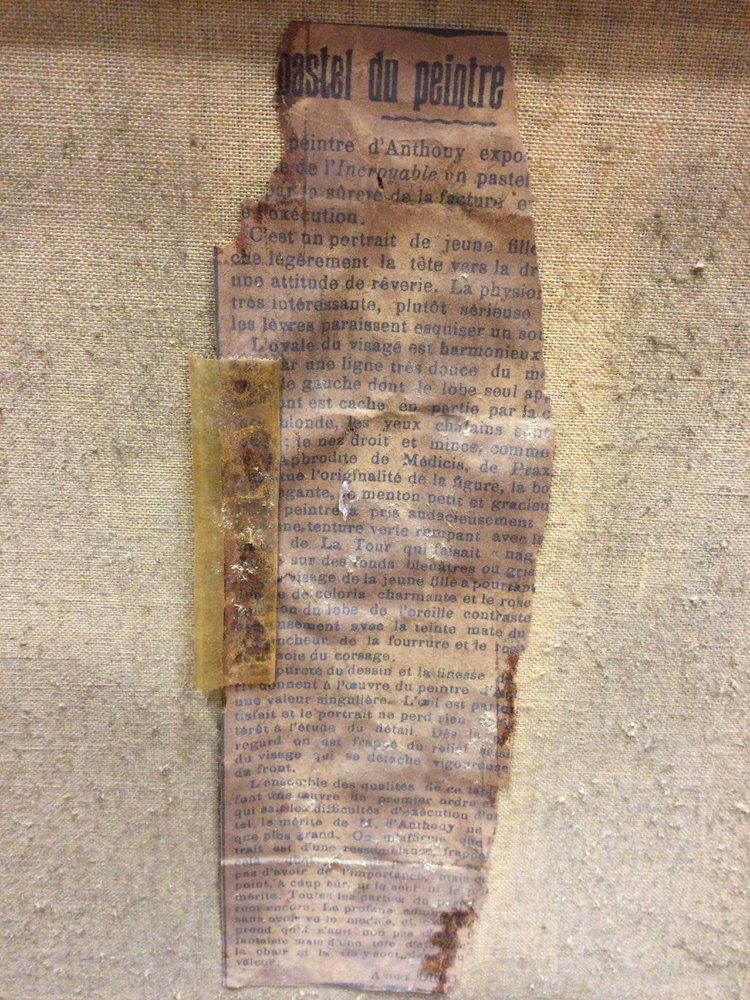 pastel du peintre
peintre d'Anthouy expo
de l'Incroyable un pastel
par la sûreté de la facture e
l'exécution.
C'est un portrait de jeune fille
che légèrement la tête vers la dr
une attitude de rêverie. La physion
très intéressante, plutôt sérieuse
les lèvres paraissent esquiser un sou
L'ovale du visage est harmonieux
ar une ligne très douce du me
te gauche dont le lobe seul ap
ant est caché en partie par la c
blonde, les yeux châtains sont
; le nez droit et mince, comme
Aphrodite de Médicis, de Prax
ne l'originalité de la figure, la bo
égante, le menton petit et gracieu
peintre a pris audacieusement
ne tenture verte rompant avec la
de La Tour qui faisait « nag
sur des fonds bleuâtres ou gris
visage de la jeune fille a pourtant
de coloris charmante et le rose
on du lobe de l'oreille contraste
usement avec la teinte mate du
ncheur de la fourrure et le rose
soie du corsage.
pureté du dessin et la finesse
donnent à l'œuvre du peintre d'A
une valeur singulière. L'œil est parto
tisfait et le portrait ne perd rien
térêt à l'étude du détail. Dès le
regard on est frappé du relief
du visage qui se détache vigoureuse
de front.
L'ensemble des qualités de ce tabl
font une œuvre de premier ordre et
qui sait les difficultés d'exécution d'u
tel, le mérite de M. d'Anthouy ne
que plus grand. On m'affirme que
trait est d'une ressemblance frappa
pas d'avoir l'importance, mais
point, à coup sûr, ni le seul ni le p
mérite. Toutes les parties du
encore. Le profane
sans avoir vu le modèle, et,
prend qu'il s'agit non pas
fantaisie mais d'une tête d'
la chair et la vie
valeur.